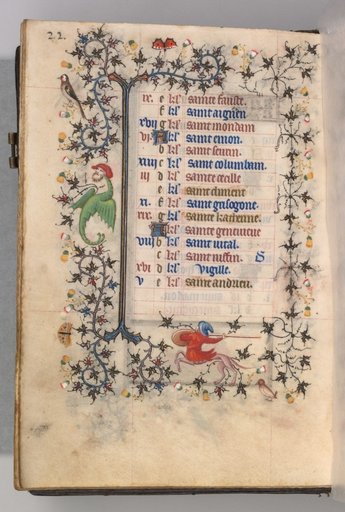 22.
ix. e kł sainte fauste.
f kł saint aignen
xvii g kł saint mondain
vi A kł saint emon.
b kł saint seurin.
xiiij c kł saint columbain.
iij d kł sainte cecille
e kł saint climent
xi. f kł saint grisogone.
xix. g kł sainte katherine.
A kł sainte geneuieue
viij b kł saint vital.
c kł saint rufin. S
xvi d kł Vigille.
v e kł saint andrieu.